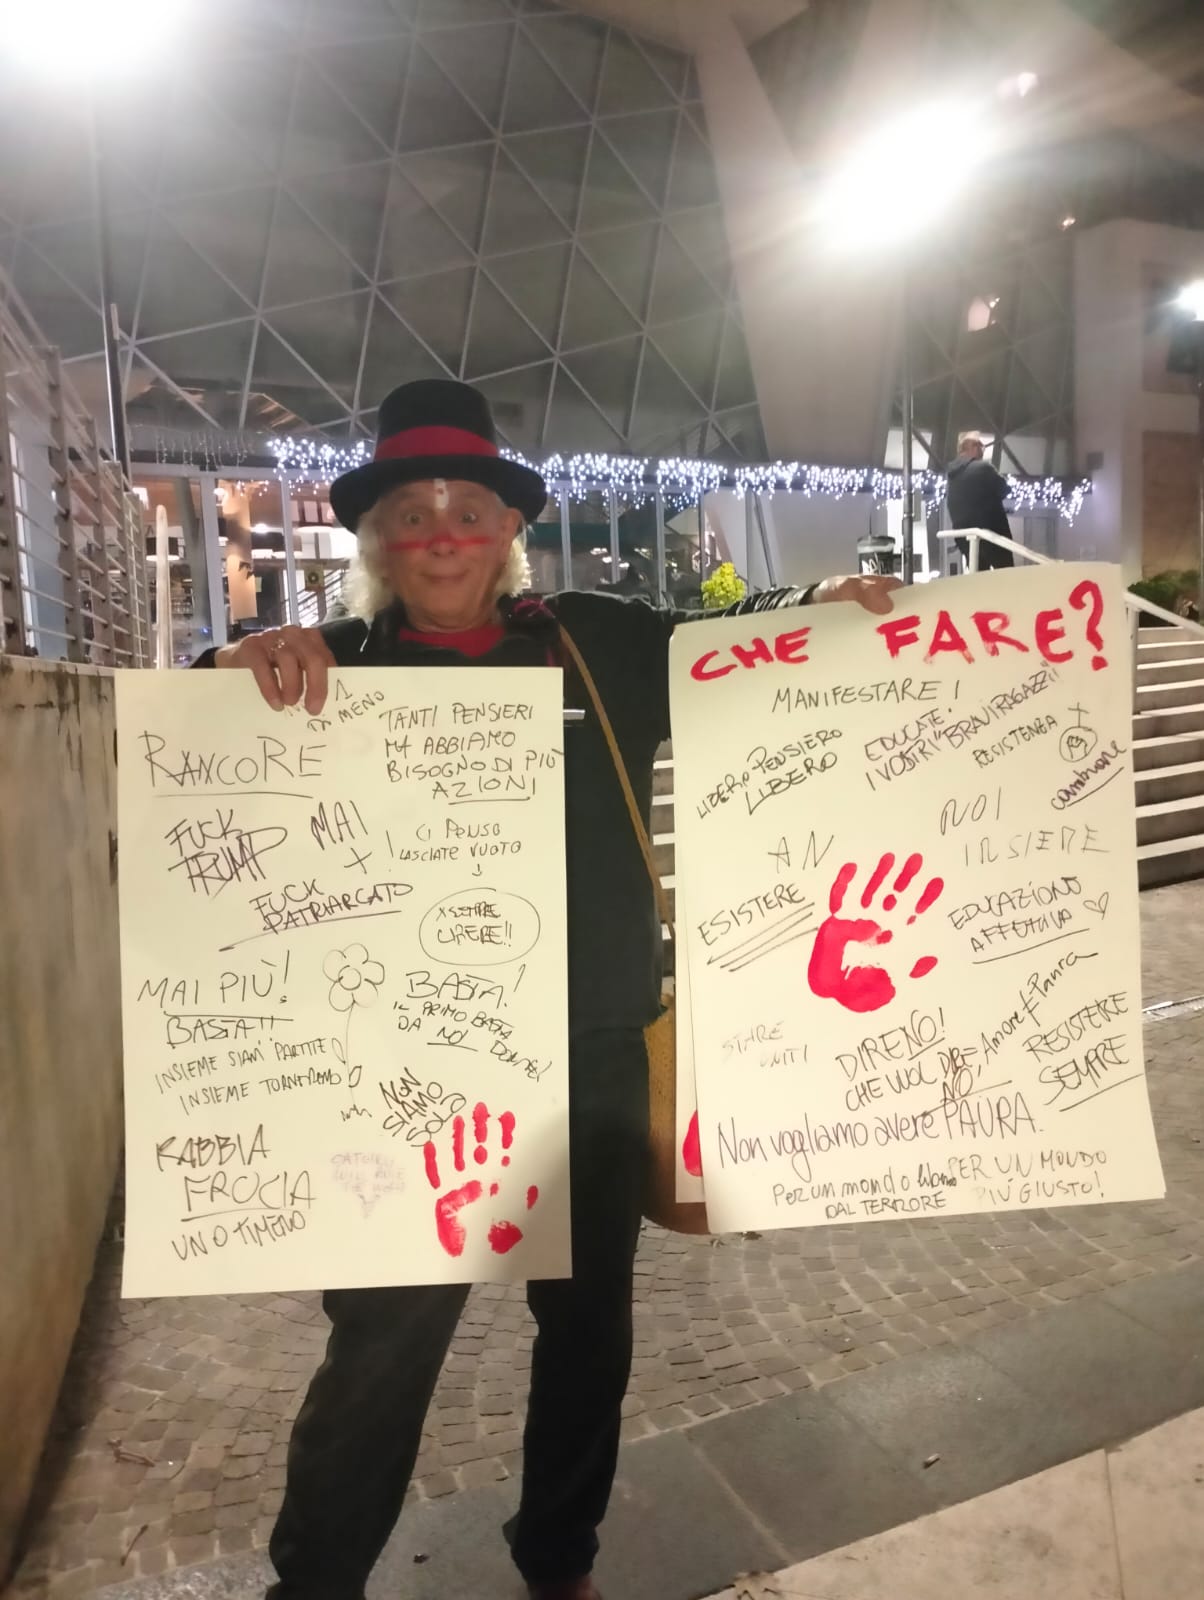 1
DI MENO
RANCORE
TANTI PENSIERI
MA ABBIAMO
BISOGNO DI PIÙ
AZIONI
FUCK
TRUMP
MAI
+
!
CI PENSO
LASCIATE VUOTO
FUCK
PATRIARCATO
X SEMPRE
LIBERE!!
MAI PIÙ!
BASTA!!
INSIEME SIAM PARTITE
INSIEME TORNEREMO
BASTA!
IL PRIMO BASTA
DA NOI DONNE!
NON
SIAMO
SOLO
RABBIA
FROCIA
UNO TIMENO
CHE FARE?
MANIFESTARE!
LIBERO PENSIERO
LIBERO
EDUCATE.
I VOSTRI "BRAVI RAGAZZI"
RESISTENZA
AN
ESISTERE
NOI
INSIEME
EDUCAZIONE
AFFETTIVA
STARE
UNITI
DIRE NO!
CHE VUOL DIRE
NO,
Amore ≠ Paura
RESISTERE
SEMPRE
Non vogliamo avere PAURA.
Per un mondo libero
DAL TERRORE
PER UN MONDO
PIÙ GIUSTO!